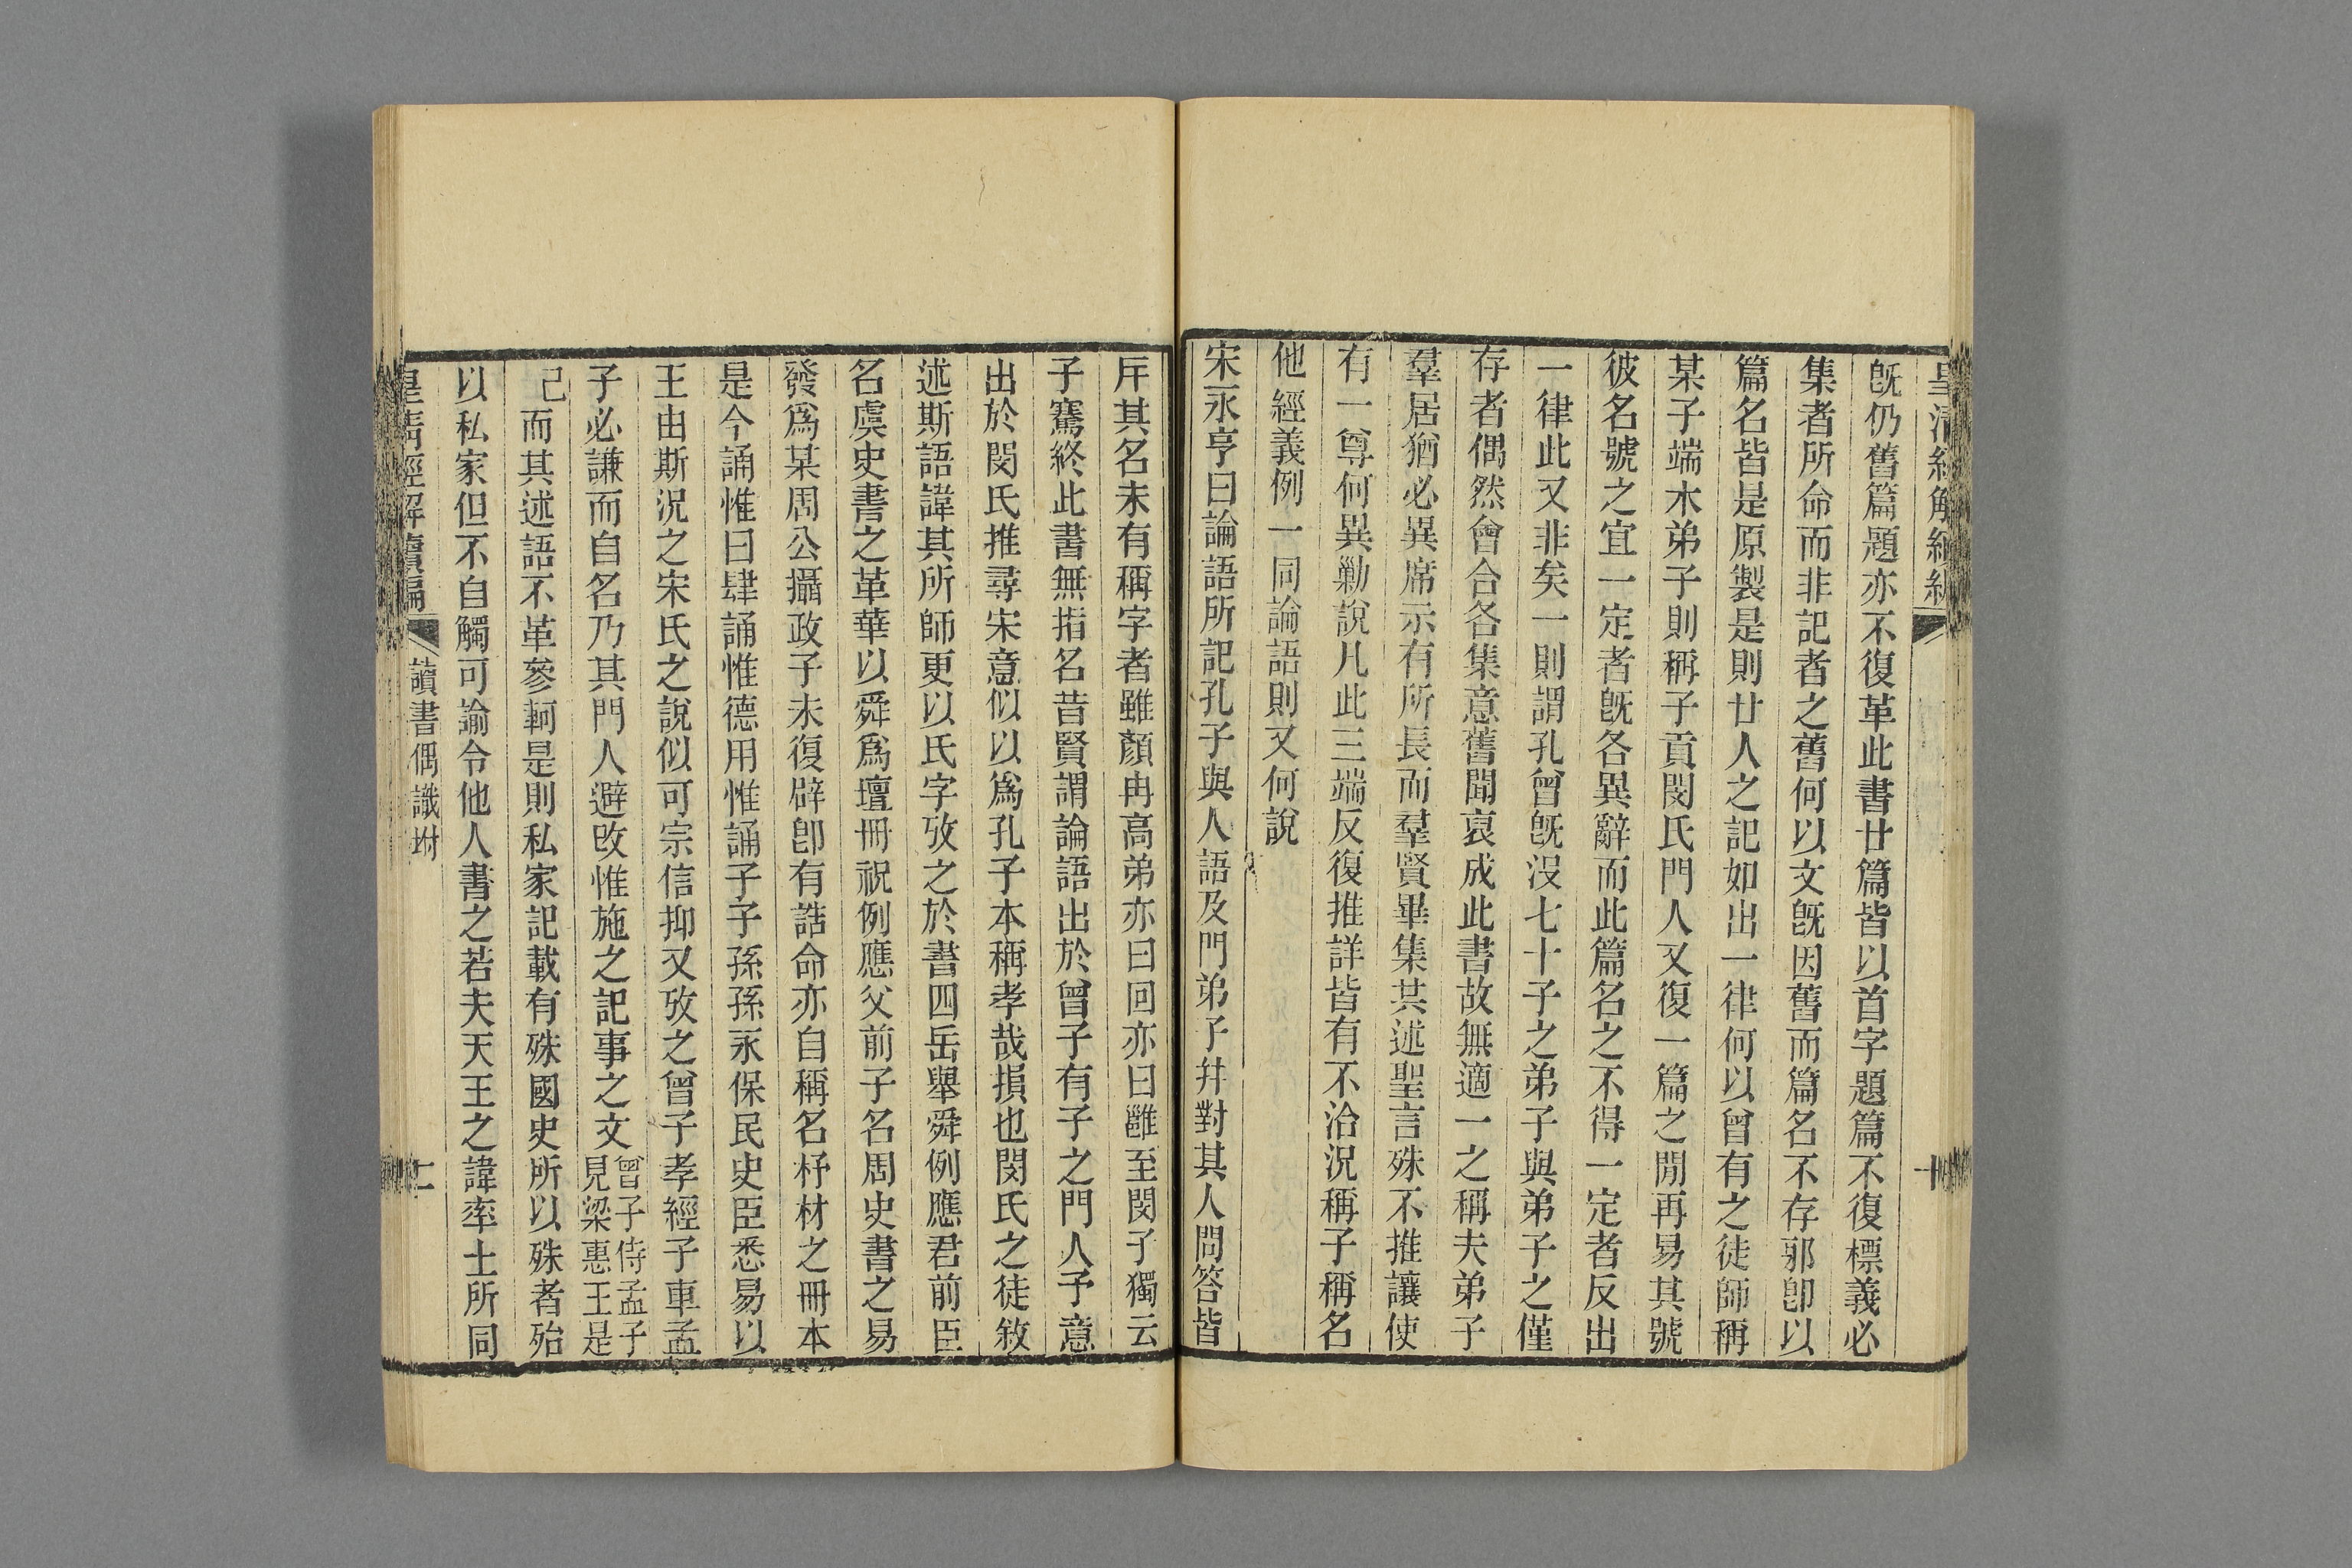 皇清經解續編
十
旣仍舊篇題亦不復革此書廿篇皆以首字題篇不復標義必
集者所命而非記者之舊何以文旣因舊而篇名不存郭卽以
篇名皆是原製是則廿人之記如出一律何以曾有之徒師稱
某子端木弟子則稱子貢閔氏門人又復一篇之閒再易其號
彼名號之宜一定者旣各異辭而此篇名之不得一定者反出
一律此又非矣一則謂孔曾旣沒七十子之弟子與弟子之僅
存者偶然會合各集意舊聞裒成此書故無適一之稱夫弟子
羣居猶必異席示有所長而羣賢畢集其述聖言殊不推讓使
有一尊何異勦說凡此三端反復推詳皆有不洽況稱子稱名
他經義例一同論語則又何說
宋永亨曰論語所記孔子與人語及門弟子幷對其人問答皆
斥其名未有稱字者雖顏冉高弟亦曰回亦曰雝至閔子獨云
子騫終此書無指名昔賢謂論語出於曾子有子之門人予意
出於閔氏推尋宋意似以爲孔子本稱孝哉損也閔氏之徒敘
述斯語諱其所師更以氏字攷之於書四岳舉舜例應君前臣
名虞史書之革華以舜爲壇冊祝例應父前子名周史書之易
發爲某周公攝政子未復辟卽有誥命亦自稱名杍材之冊本
是今誦惟曰肆誦惟德用惟誦子子孫孫永保民史臣悉易以
王由斯況之宋氏之說似可宗信抑又攷之曾子孝經子車孟
子必謙而自名乃其門人避改惟施之記事之文曾子侍孟子見梁惠王是
己而其述語不革參軻是則私家記載有殊國史所以殊者殆
以私家但不自觸可諭令他人書之若夫天王之諱率土所同
皇清經解續編
讀書偶識坿
二